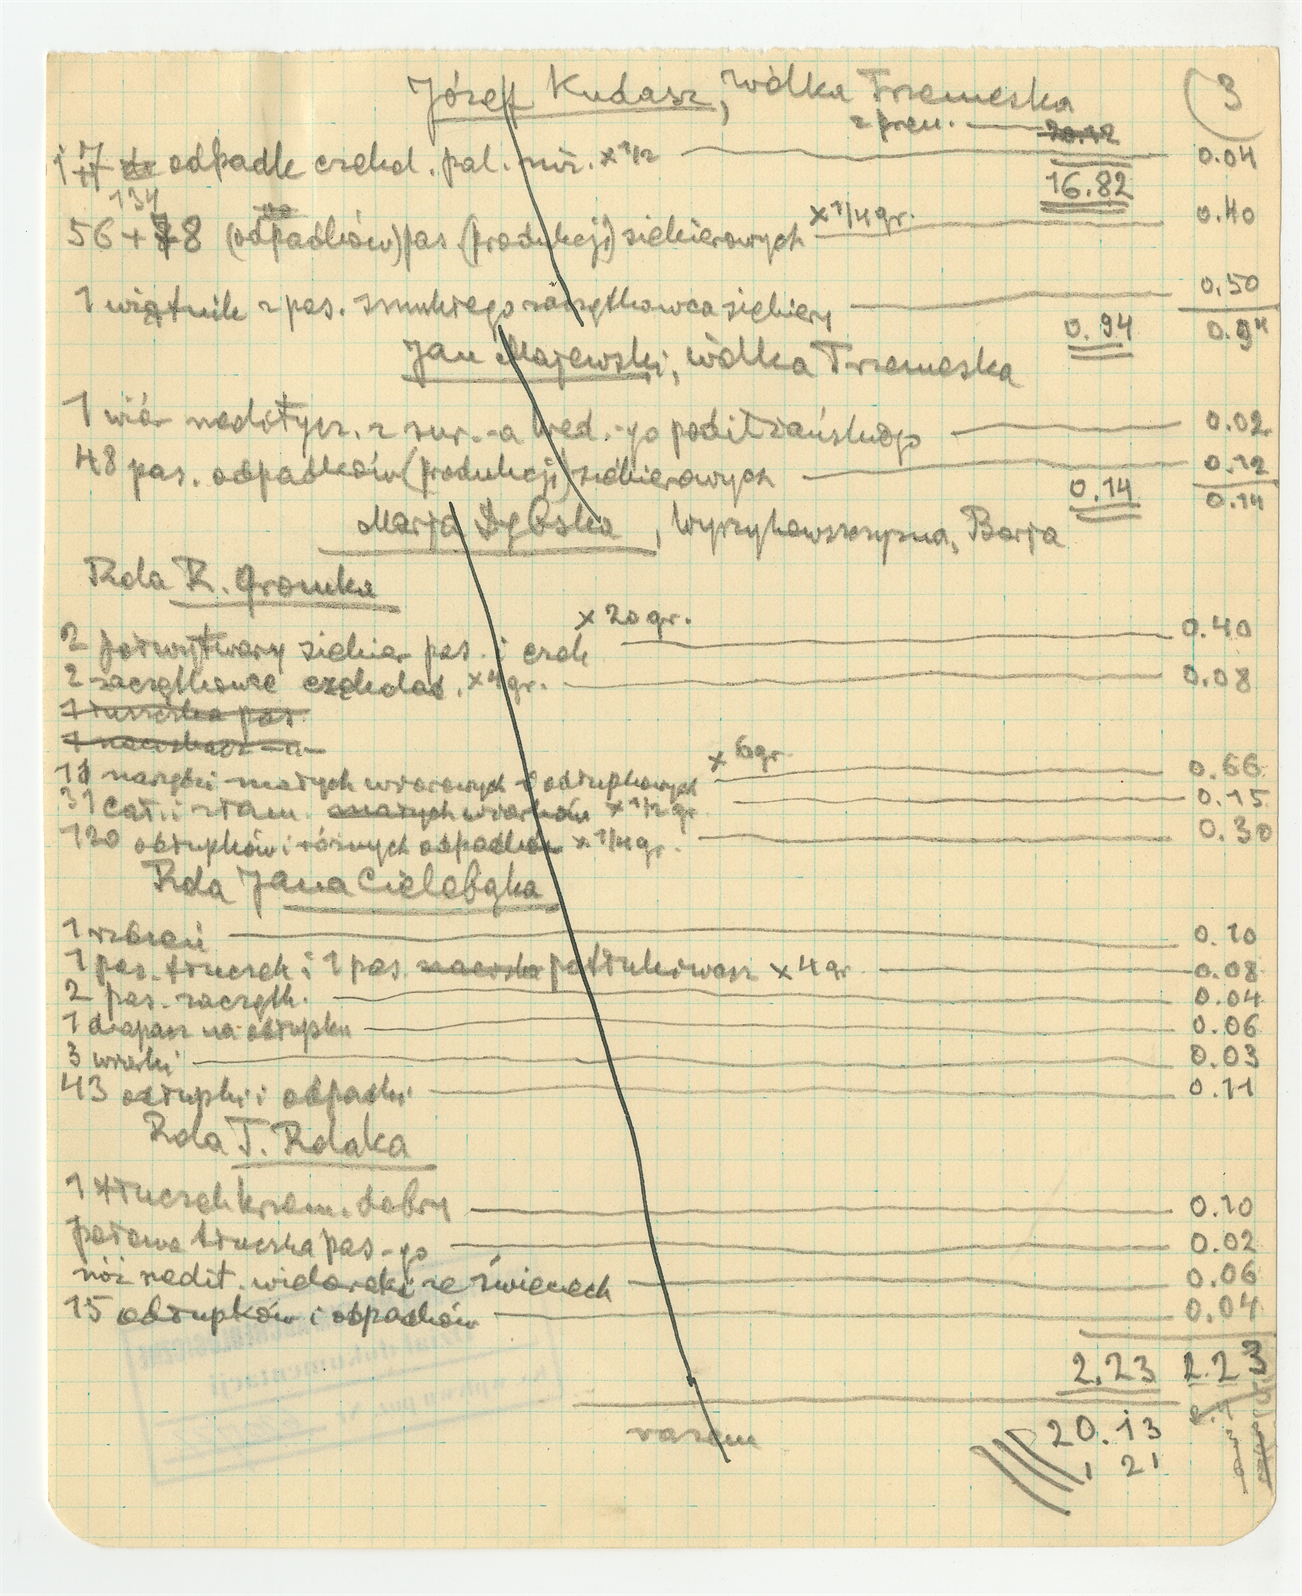 Józef Kudasz, Wólka Trzemeska 3
z przen. 20.12
17 odpadk czekol. pal. x 1/2 0.04
16.82
134
56 + 78 (odpadków) pas (produkcji) siekierowych x 1/4 gr. 0.40
1 z pas. smukłego zaczątkowca siekiery 0.50
0.94 0.94
Jan Majewski, Wólka Trzemeska
1 wiór 0.02
48 pas. odpadków (produkcji) siekierowych 0.12
0.14 0.14
Marja Dębska, Wyrzykowszczyzna, Borja
Rola R. Gromka
x 20 gr.
2 półwytwory siekier pas. i czek 0.40
2 zaczątkowce czekolad. x 4 gr. 0.08
1 tłuczka pas.
1
11 narzędzi małych wiórowych i odłupkowych x 6 gr. 0.66
31 cał. i złam. małych wiórków x 1/2 gr 0.15
120 odłupków i różnych odpadków x 1/4 gr. 0.30
Rola Jana Cielebąka
1 rdzeń 0.10
1 pas. tłuczek i 1 pas. potłukiwacz x 4 gr 0.08
2 pas. zaczątk. 0.04
1 drapacz na odłupku 0.06
3 wiórki 0.03
43 odłupki i odpadki 0.11
Rola T. Rolaka
1 tłuczek krzem. dobry 0.10
połowa tłuczka pas-go 0.02
nóż nedit. ze Świeciech 0.06
15 odłupków i odpadków 0.04
2.23 2.23
razem 20.13
1 21